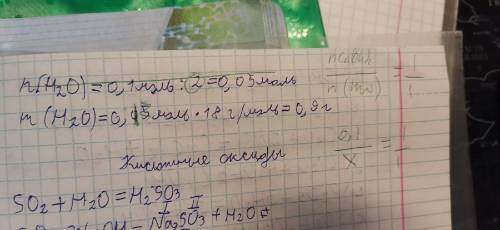 n(H₂O)=0,1моль:2=0,05моль
m(H₂O)=0,05моль·18г/моль=0,9г
Кислотные оксиды
SO₂+H₂O=H₂SO₃
I II
Na₂SO₃+H₂O
= 1/1
0,1/x = 1/1